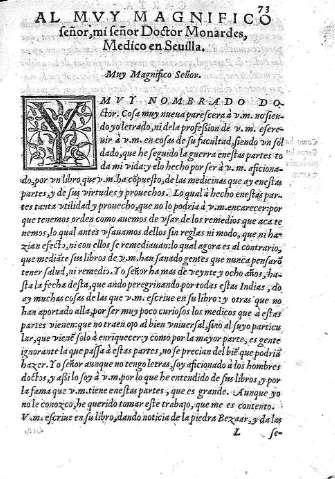 73
AL MVY MAGNIFICO
señor, mi señor Doctor Monardes,
Medico en Seuilla.
Muy Magnifico Señor.
Y MVY NOMBRADO DO-
ctor. Cosa muy nueua parescera à v.m. no sien-
do yo letrado, ni de la profesion dẽ v.m. escre-
uir à v.m. en cosas de su facultad, siendo vn sol
dado, que he seguido la guerra enestas partes to
da mi vida: y elo hecho por ser à v.m. aficiona-
do, por vn libro que v.m. ha cõpuesto, de las medicinas que ay enestas
partes, y de sus virtudes y prouechos. Lo qual à hecho enestas par-
tes tanta vtilidad y prouecho, que no lo podria à v.m. encarecer: por
que tenemos orden como auemos de vsar de los remedios que aca te
nemos, lo qual antes vsauamos dellos sin reglas ni modo, que ni ha-
zian efecto, ni con ellos se remediauan: lo qual agora es al contrario,
que mediãte sus libros de v.m. han sanado gentes que nunca pensarõ
tener salud, ni remedio. Yo señor ha mas de veynte y ocho años, ha-
sta la fecha desta, que ando peregrinando por todas estas Indias, do
ay muchas cosas de las que v.m. escriue en su libro: y otras que no
han aportado alla, por ser muy poco curiosos los medicos que à esta
partes vienen: que no traen ojo al bien vniuersal, sinò al suyo particu
lar, que vienẽ solo à enriquecer: y como por la mayor parte, es gente
ignorante la que passa à estas partes, no se precian del biẽ que podriã
hazer. Yo señor aunque no tengo letras, soy aficionado à los hombres
doctos, y assi lo soy à v.m. por lo que he entendido de sus libros, y por
la fama que v.m. tiene enestas partes, que es grande. Aunque yo
no le conozco, he querido tomar este trabajo, que me es contento.
V.m. escriue en su libro, dando noticia de la piedra Bezaar, y da las
L se-